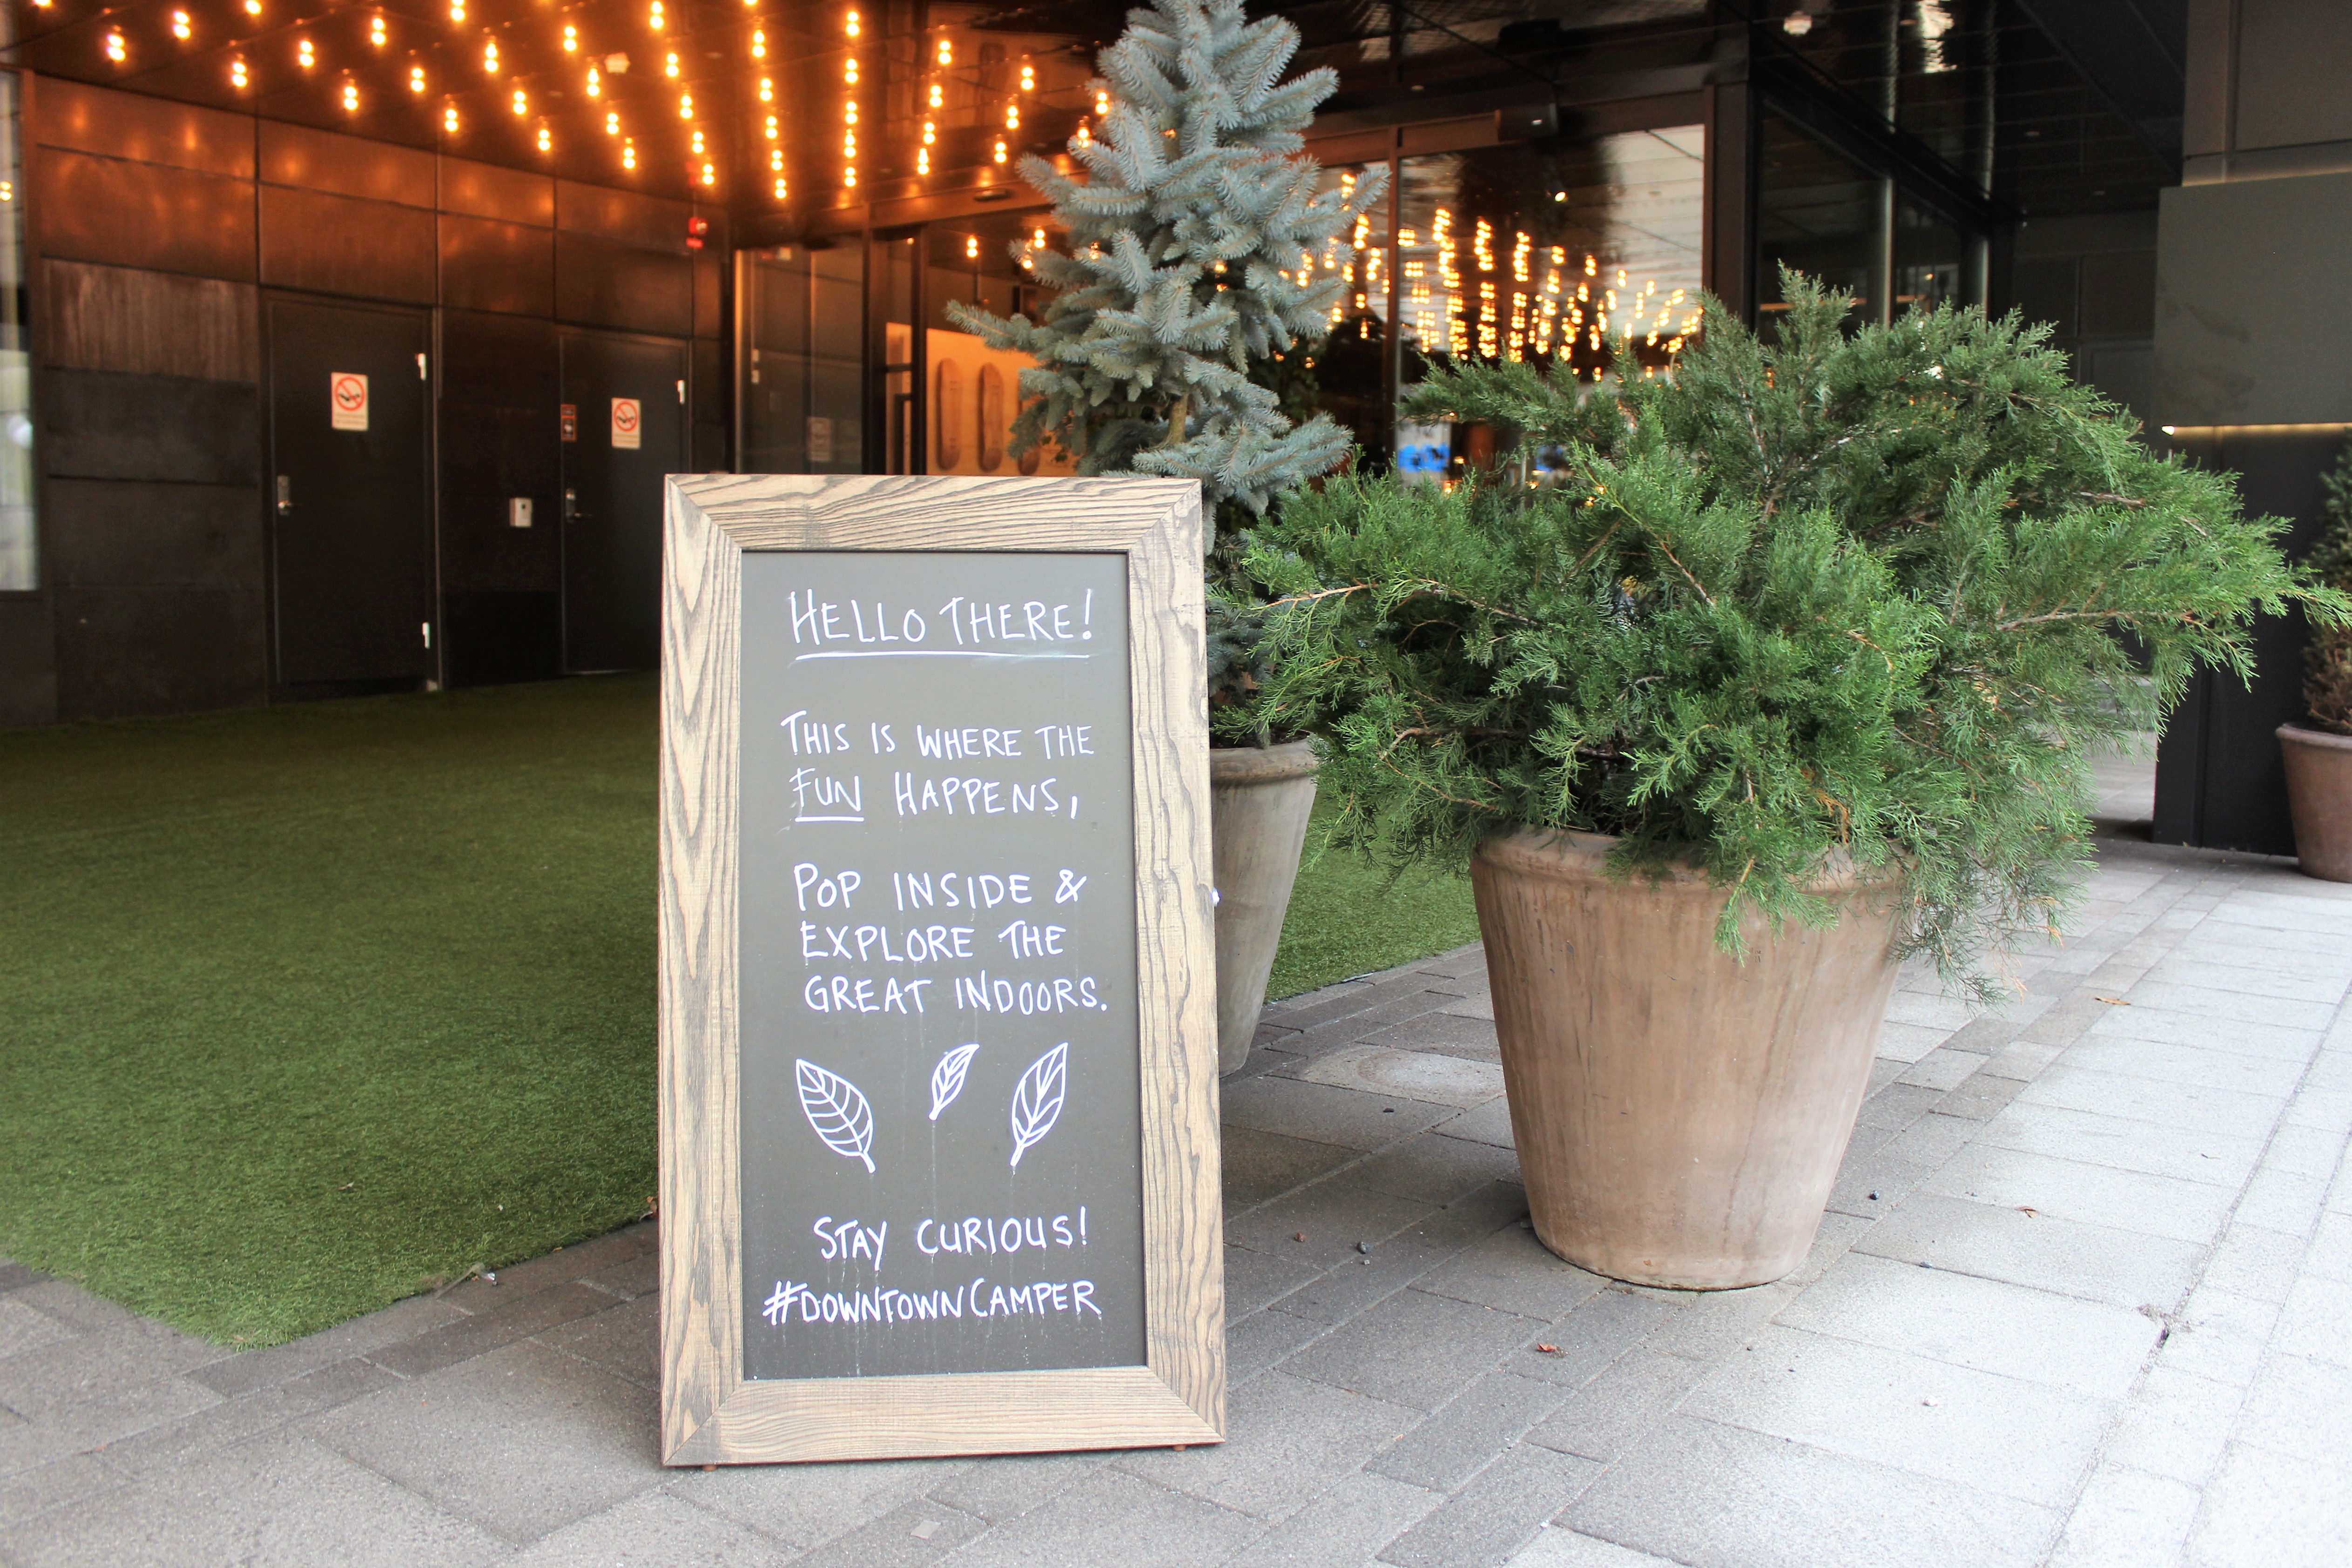 HELLO THERE!
THIS IS WHERE THE
FUN HAPPENS,
POP INSIDE &
EXPLORE THE
GREAT INDOORS.
STAY CURIOUS!
#DOWNTOWNCAMPER